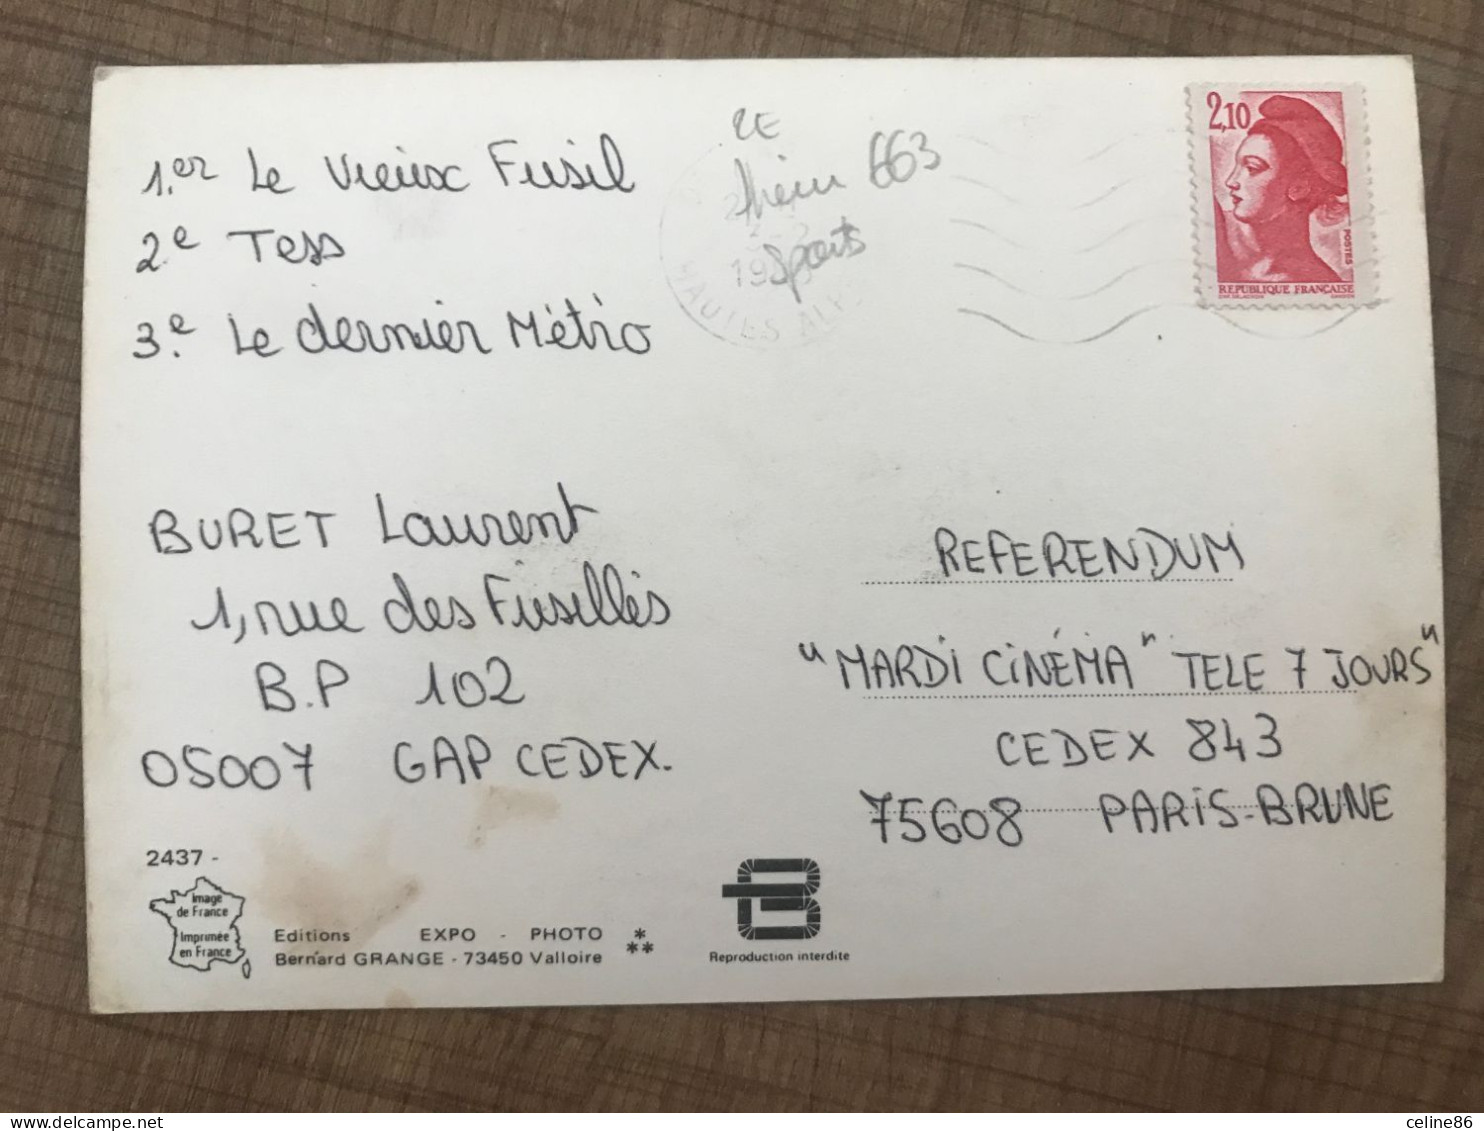 1.er Le Vieux Fusil
2e Tess
3.e Le dernier Métro
2E
663
Sports
19
HAUTES ALPES
2,10
POSTES
REPUBLIQUE FRANÇAISE
BURET Laurent
1, rue des Fusillés
B.P 102
05007 GAP CEDEX.
REFERENDUM
"MARDI CINÉMA" TELE 7 JOURS"
CEDEX 843
75608 PARIS-BRUNE
2437 -
Image
de France
Imprimée
en France
Editions EXPO - PHOTO
Bernard GRANGE - 73450 Valloire
*
**
Reproduction interdite
delcampe.net
celine86